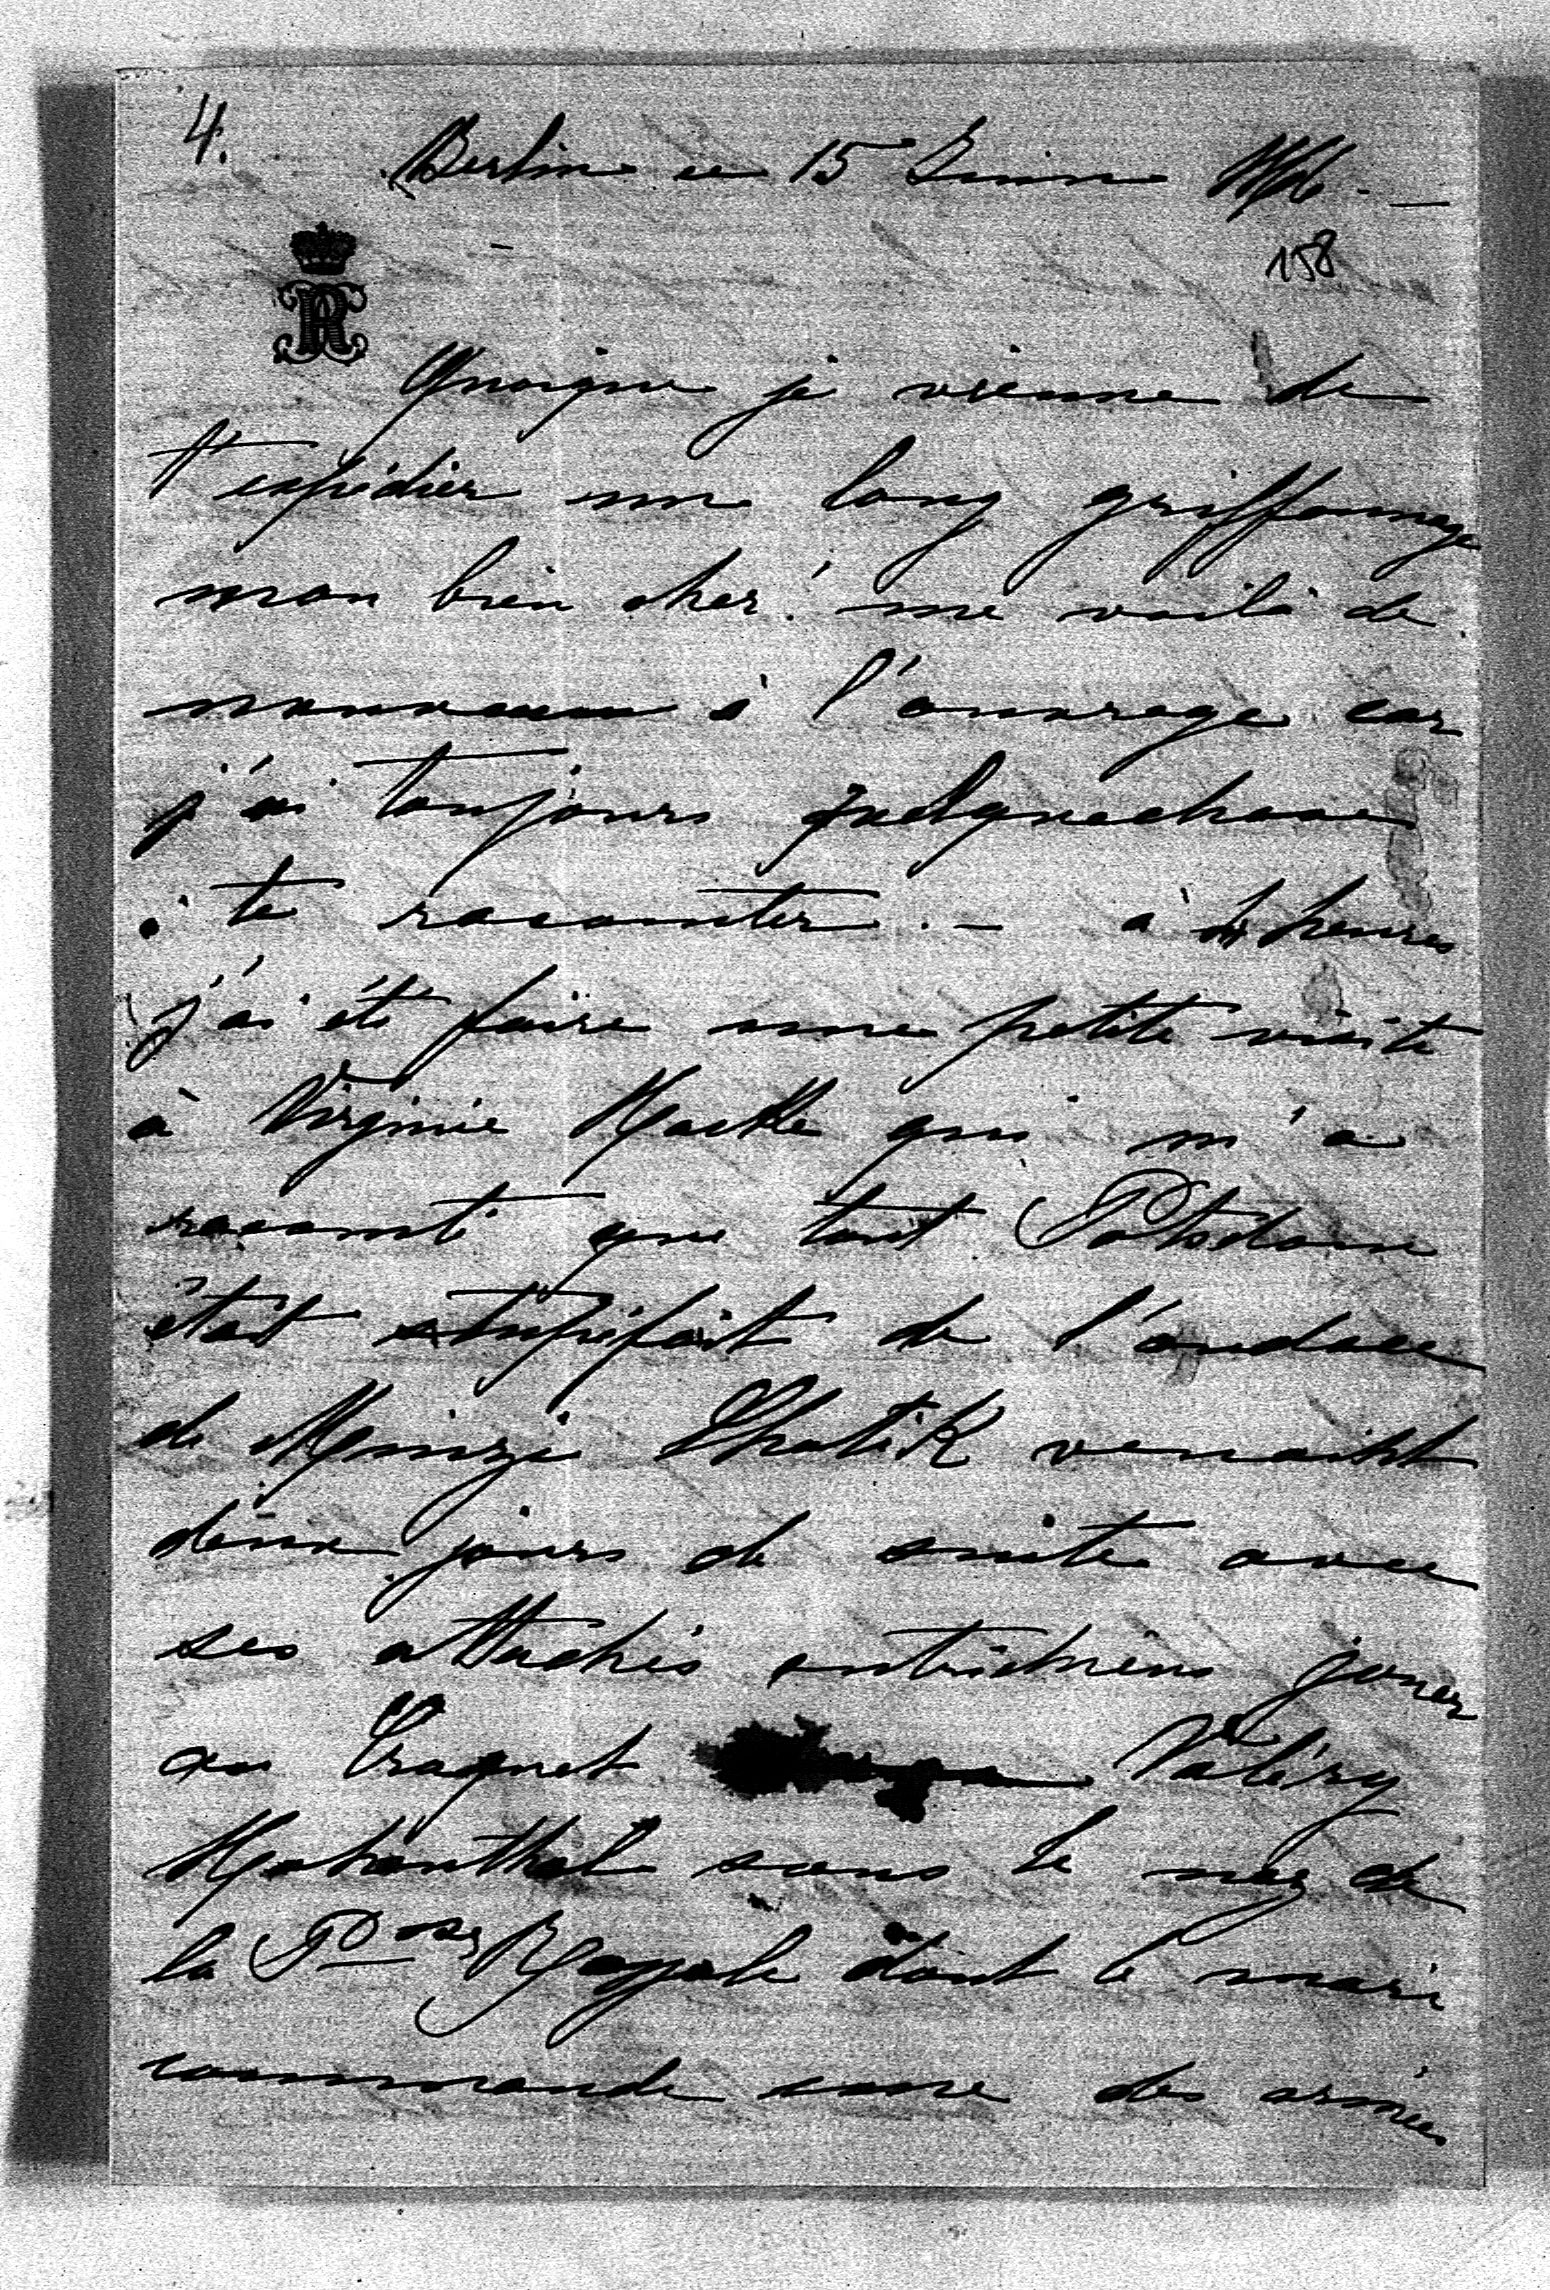 4.
Berlin ce 15 Juin 66. —
158
R
Quoique je vienne de
t'expédier un long griffonnage
mon bien cher! me voilà de
nouveau à l'ouvrage car
j'ai toujours quelquechose
à te raconter. — à heures
j'ai été faire une petite visite
à Virginie Hacke qui m'a
raconté que tout Potsdam
était stupéfait de l'audace
de Chotek venant
deux jours de suite avec
ses attachés autrichiens jouer
au Craquet Valéry
sous le nez de
la Pсsse Royale dont le mari
commande une des armées